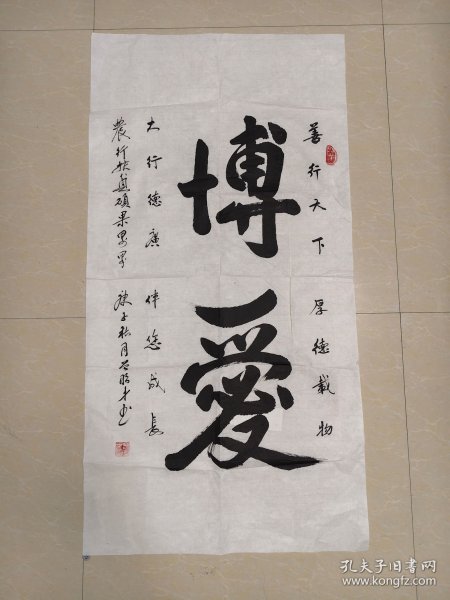 博愛
善行天下 厚德載物
大行德廣 伴您成長
農行扶貧碩果累累 庚子秋月
孔夫子旧书网
www.kongfz.com